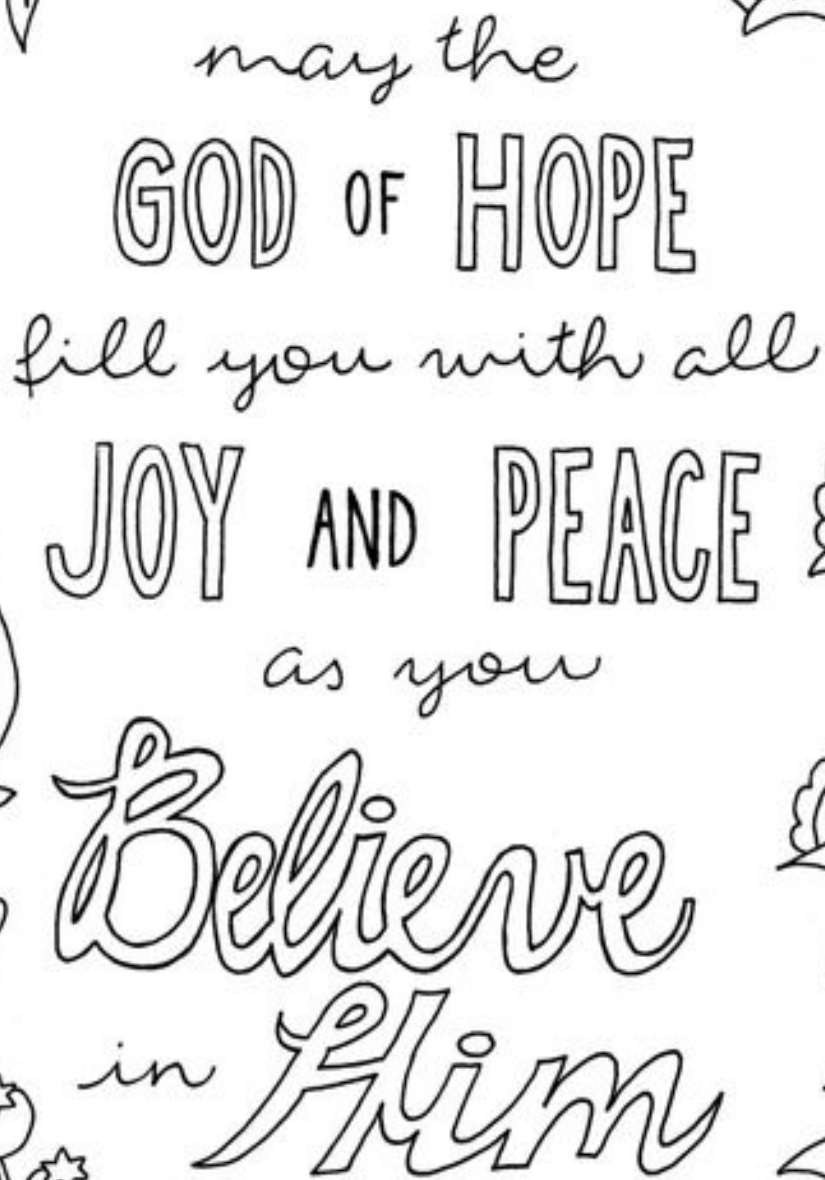 may the
GOD OF HOPE
fill you with all
JOY AND PEACE
as you
Believe
in Him